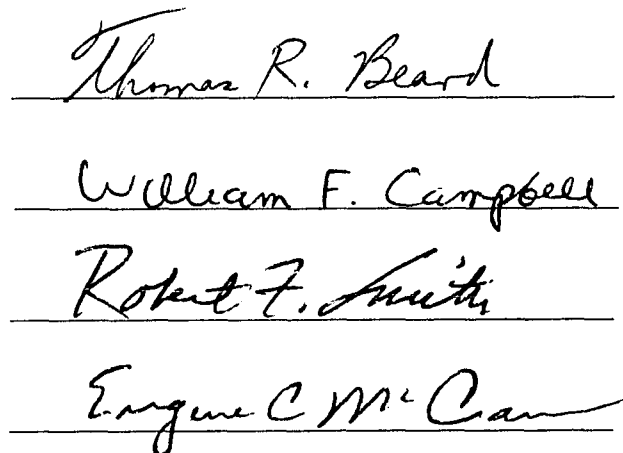 Thomas R. Beard
William F. Campbell
Robert F. Smith
Eugene C McCann